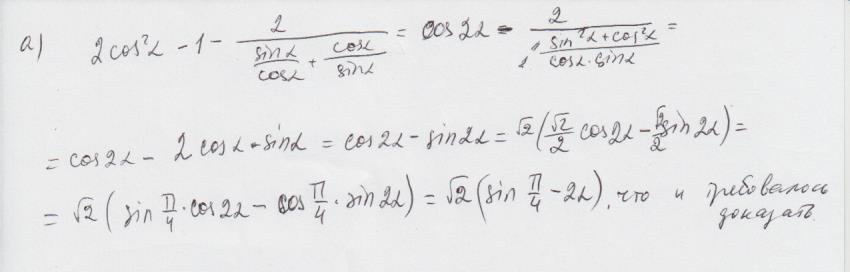 а) 2cos²α - 1 - 2/(sinα/cosα + cosα/sinα) = cos2α - 2/((sin²α + cos²α)/(cosα·sinα)) =
= cos2α - 2cosα·sinα = cos2α - sin2α = √2(√2/2 cos2α - √2/2 sin2α) =
= √2(sin π/4 · cos2α - cos π/4 · sin2α) = √2(sin π/4 - 2α), что и требовалось
доказать.